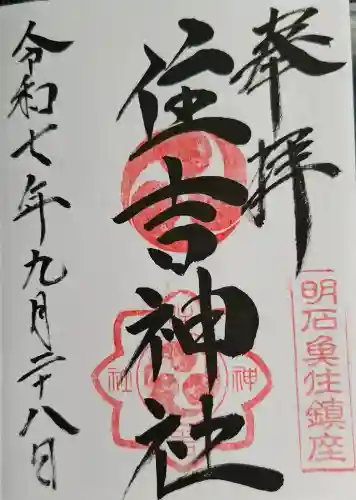 奉拝
明石魚住鎮座
住吉神社
令和七年九月二十八日